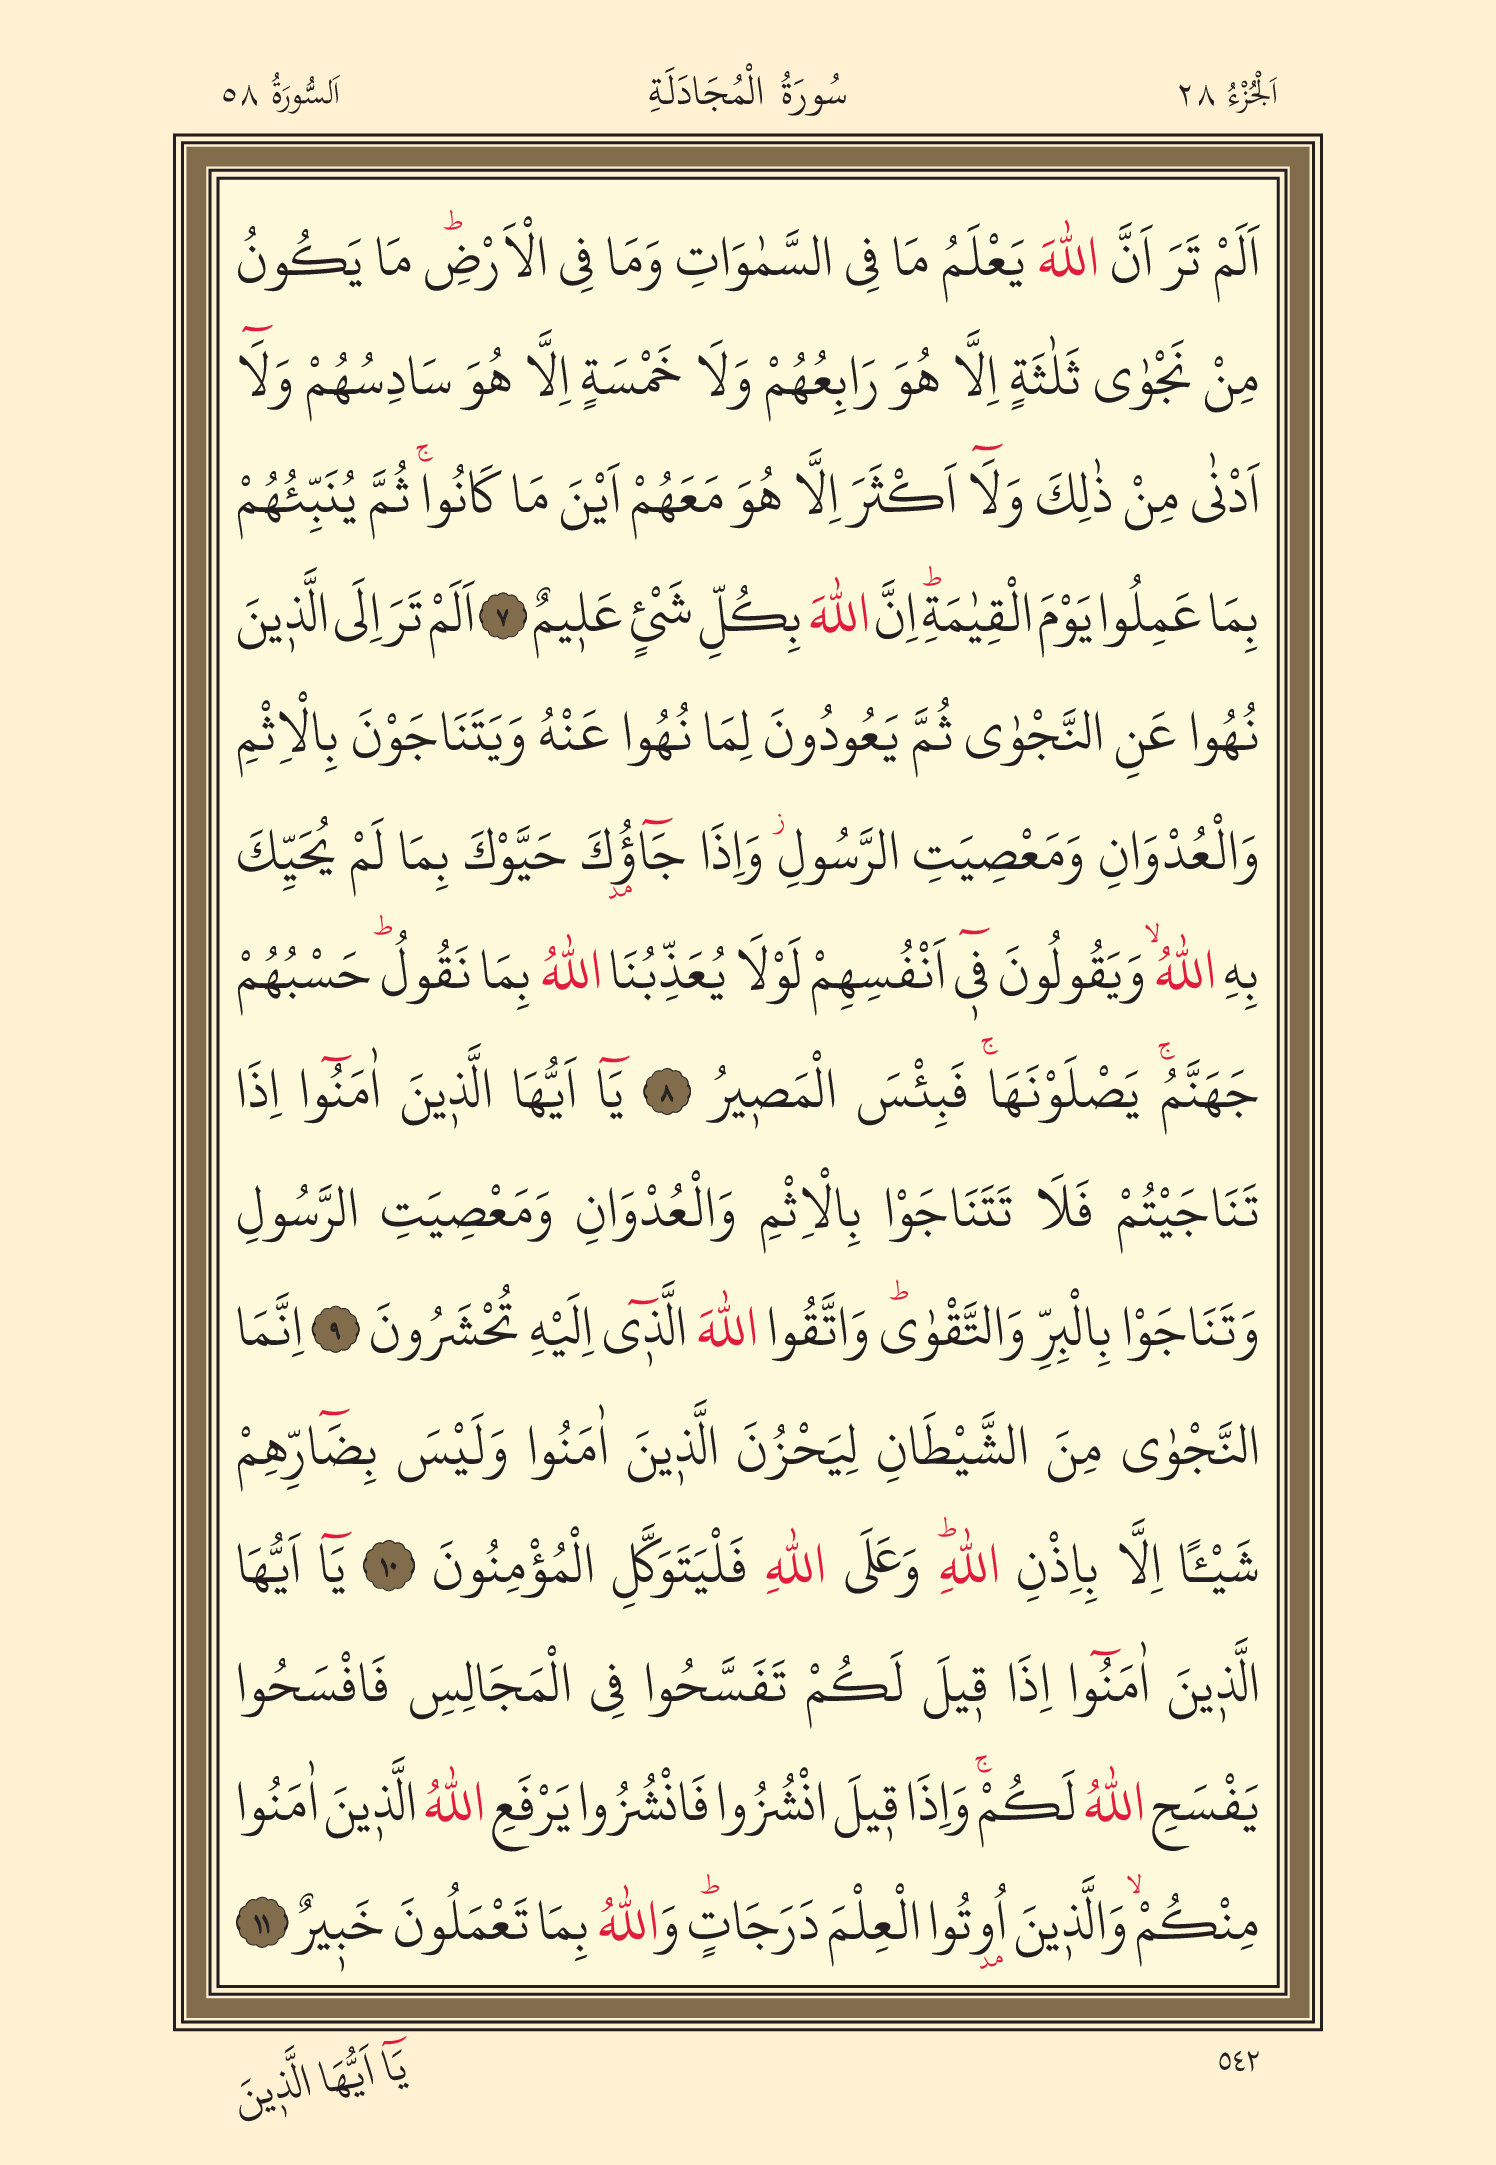 اَلْجُزْءُ ٢٨ سُورَةُ الْمُجَادَلَةِ اَلسُّورَةُ ٥٨
اَلَمْ تَرَ اَنَّ اللّٰهَ يَعْلَمُ مَا فِى السَّمٰوَاتِ وَمَا فِى الْاَرْضِۜ مَا يَكُونُ
مِنْ نَجْوٰى ثَلٰثَةٍ اِلَّا هُوَ رَابِعُهُمْ وَلَا خَمْسَةٍ اِلَّا هُوَ سَادِسُهُمْ وَلَٓا
اَدْنٰى مِنْ ذٰلِكَ وَلَٓا اَكْثَرَ اِلَّا هُوَ مَعَهُمْ اَيْنَ مَا كَانُواۚ ثُمَّ يُنَبِّئُهُمْ
بِمَا عَمِلُوا يَوْمَ الْقِيٰمَةِۜ اِنَّ اللّٰهَ بِكُلِّ شَیْئٍ عَلٖيمٌ ٧ اَلَمْ تَرَ اِلَى الَّذٖينَ
نُهُوا عَنِ النَّجْوٰى ثُمَّ يَعُودُونَ لِمَا نُهُوا عَنْهُ وَيَتَنَاجَوْنَ بِالْاِثْمِ
وَالْعُدْوَانِ وَمَعْصِيَتِ الرَّسُولِؗ وَاِذَا جَٓاؤُ۫كَ حَيَّوْكَ بِمَا لَمْ يُحَيِّكَ
بِهِ اللّٰهُۙ وَيَقُولُونَ فٖٓى اَنْفُسِهِمْ لَوْلَا يُعَذِّبُنَا اللّٰهُ بِمَا نَقُولُۜ حَسْبُهُمْ
جَهَنَّمُۚ يَصْلَوْنَهَاۚ فَبِئْسَ الْمَصٖيرُ ٨ يَٓا اَيُّهَا الَّذٖينَ اٰمَنُٓوا اِذَا
تَنَاجَيْتُمْ فَلَا تَتَنَاجَوْا بِالْاِثْمِ وَالْعُدْوَانِ وَمَعْصِيَتِ الرَّسُولِ
وَتَنَاجَوْا بِالْبِرِّ وَالتَّقْوٰىۜ وَاتَّقُوا اللّٰهَ الَّذٖٓى اِلَيْهِ تُحْشَرُونَ ٩ اِنَّمَا
النَّجْوٰى مِنَ الشَّيْطَانِ لِيَحْزُنَ الَّذٖينَ اٰمَنُوا وَلَيْسَ بِضَٓارِّهِمْ
شَيْـًٔا اِلَّا بِاِذْنِ اللّٰهِۜ وَعَلَى اللّٰهِ فَلْيَتَوَكَّلِ الْمُؤْمِنُونَ ١٠ يَٓا اَيُّهَا
الَّذٖينَ اٰمَنُٓوا اِذَا قٖيلَ لَكُمْ تَفَسَّحُوا فِى الْمَجَالِسِ فَافْسَحُوا
يَفْسَحِ اللّٰهُ لَكُمْۚ وَاِذَا قٖيلَ انْشُزُوا فَانْشُزُوا يَرْفَعِ اللّٰهُ الَّذٖينَ اٰمَنُوا
مِنْكُمْۙ وَالَّذٖينَ اُو۫تُوا الْعِلْمَ دَرَجَاتٍۜ وَاللّٰهُ بِمَا تَعْمَلُونَ خَبٖيرٌ ١١
٥٤٢ يَٓا اَيُّهَا الَّذٖينَ